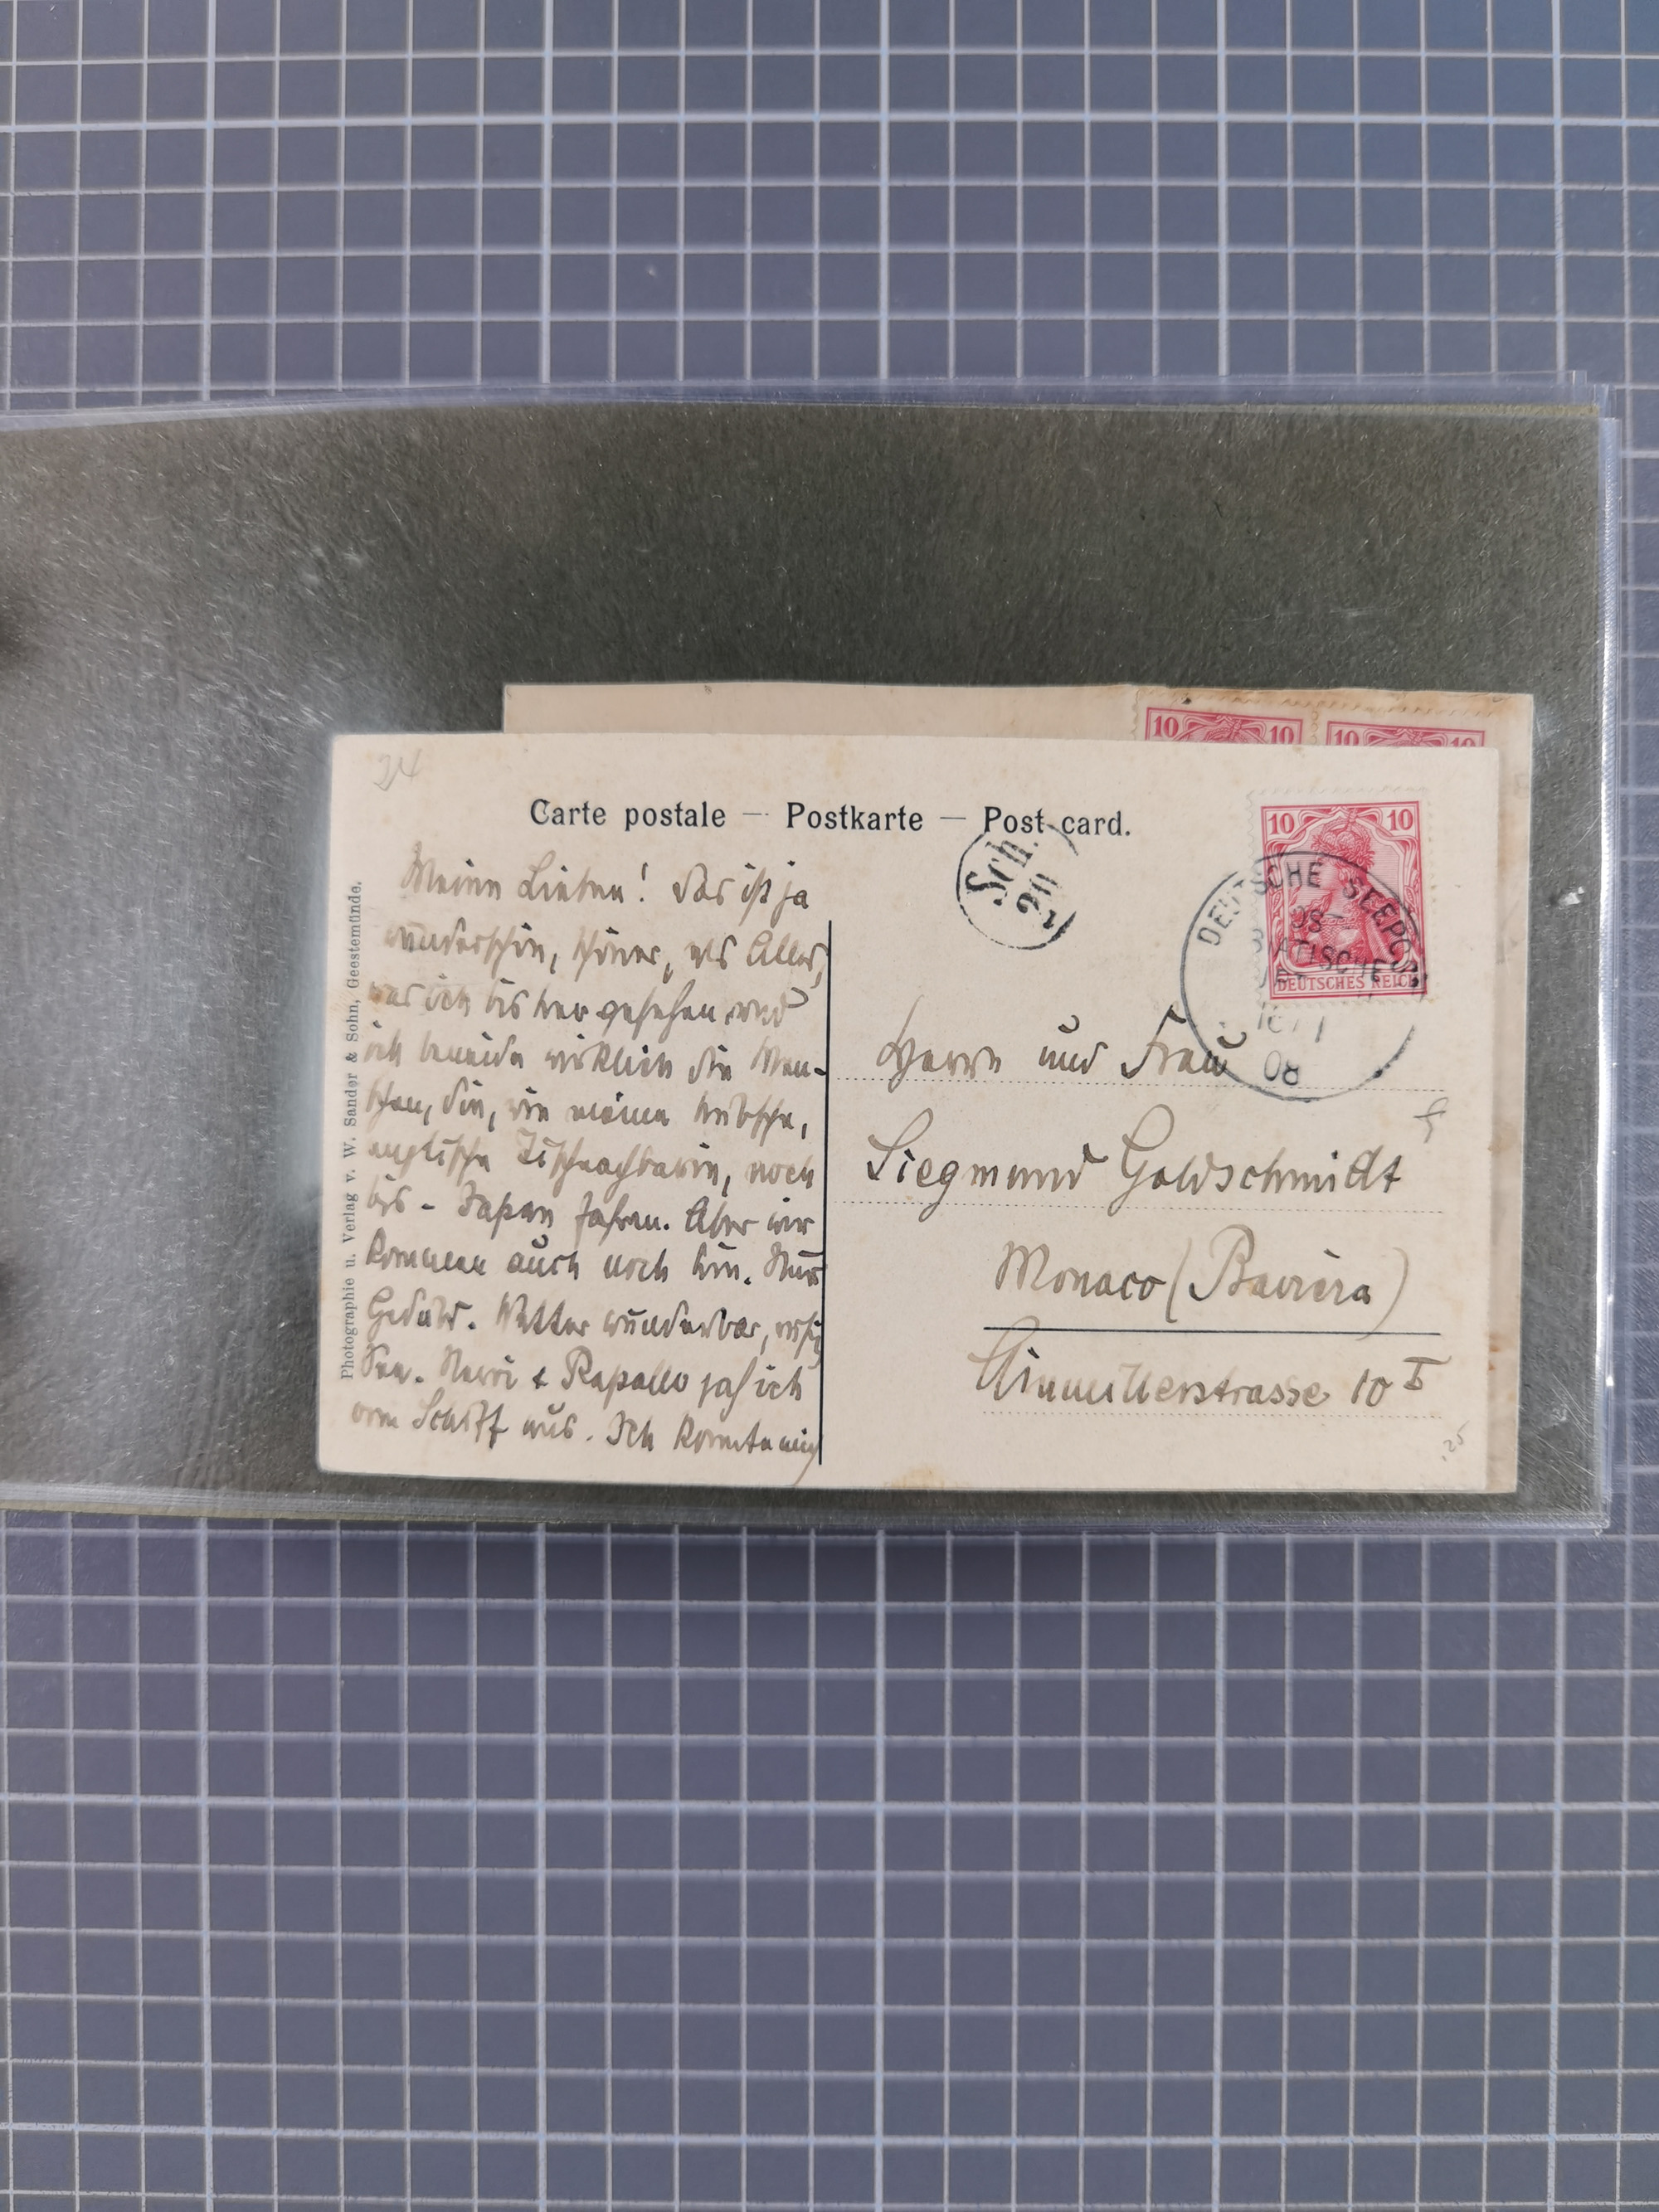 24
Carte postale — Postkarte — Post card.
Photographie u. Verlag v. W. Sander & Sohn, Geestemünde.
Meine Lieben! Das ist ja
wunderschön, schöner, als Alles,
was ich bisher gesehen und
ich beneide wirklich die Men-
schen, die, wie meine hübsche,
englische Tischnachbarin, noch
bis - Japan fahren. Aber wir
kommen auch noch hin. Nur
Geduld. Wetter wunderbar,
See. Nervi & Rapallo sah ich
vom Schiff aus. Ich konnte
Sch.
20
1
10 10
10 10
10 10
DEUTSCHES REICH
DEUTSCHE SEEPOST
OS-
ASIATISCHE
08
Herrn und Frau
Siegmund Goldschmidt
Monaco (Baviera)
Ainmillerstrasse 10 I
25